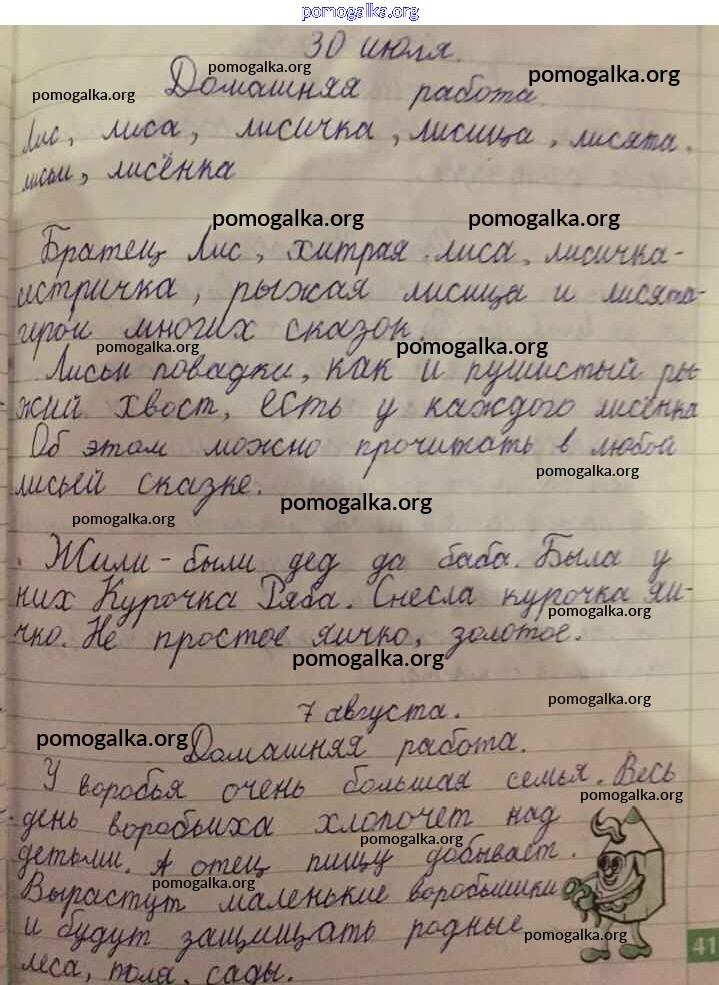 pomogalka.org
30 июля.
pomogalka.org pomogalka.org pomogalka.org
Домашняя работа
Лис, лиса, лисичка, лисица, лисята.
лисьи, лисёнка
pomogalka.org pomogalka.org
Братец Лис, хитрая лиса, лисичка-
истричка, рыжая лисица и лисята-
ирои многих сказок.
pomogalka.org pomogalka.org
Лисьи повадки, как и пушистый ры-
жий хвост, есть у каждого лисёнка
Об этом можно прочитать в любой
pomogalka.org
лисьей сказке.
pomogalka.org
pomogalka.org
Жили-были дед да баба. Была у
них Курочка Ряба. Снесла курочка яи-
pomogalka.org
чко. Не простое яичко, золотое.
pomogalka.org
pomogalka.org
7 августа.
pomogalka.org
Домашняя работа.
У воробья очень большая семья. Весь
pomogalka.org
день воробьиха хлопочет над
pomogalka.org
детьми. А отец пищу добывает.
pomogalka.org
Вырастут маленькие воробьишки
и будут защищать родные
pomogalka.org
41
леса, поля, сады.